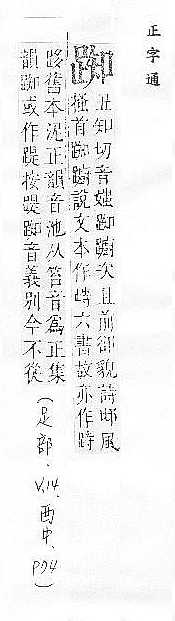 正字通
踟 丑知切音媸踟躕次且前卻貌詩邶風
搔首踟躕說文本作峙六書故亦作跱
跢舊本泥正韻音池从笞音為正集
韻踟或作踶按踶踟音義別今不從
(足部. V.14. 酉中. P94)